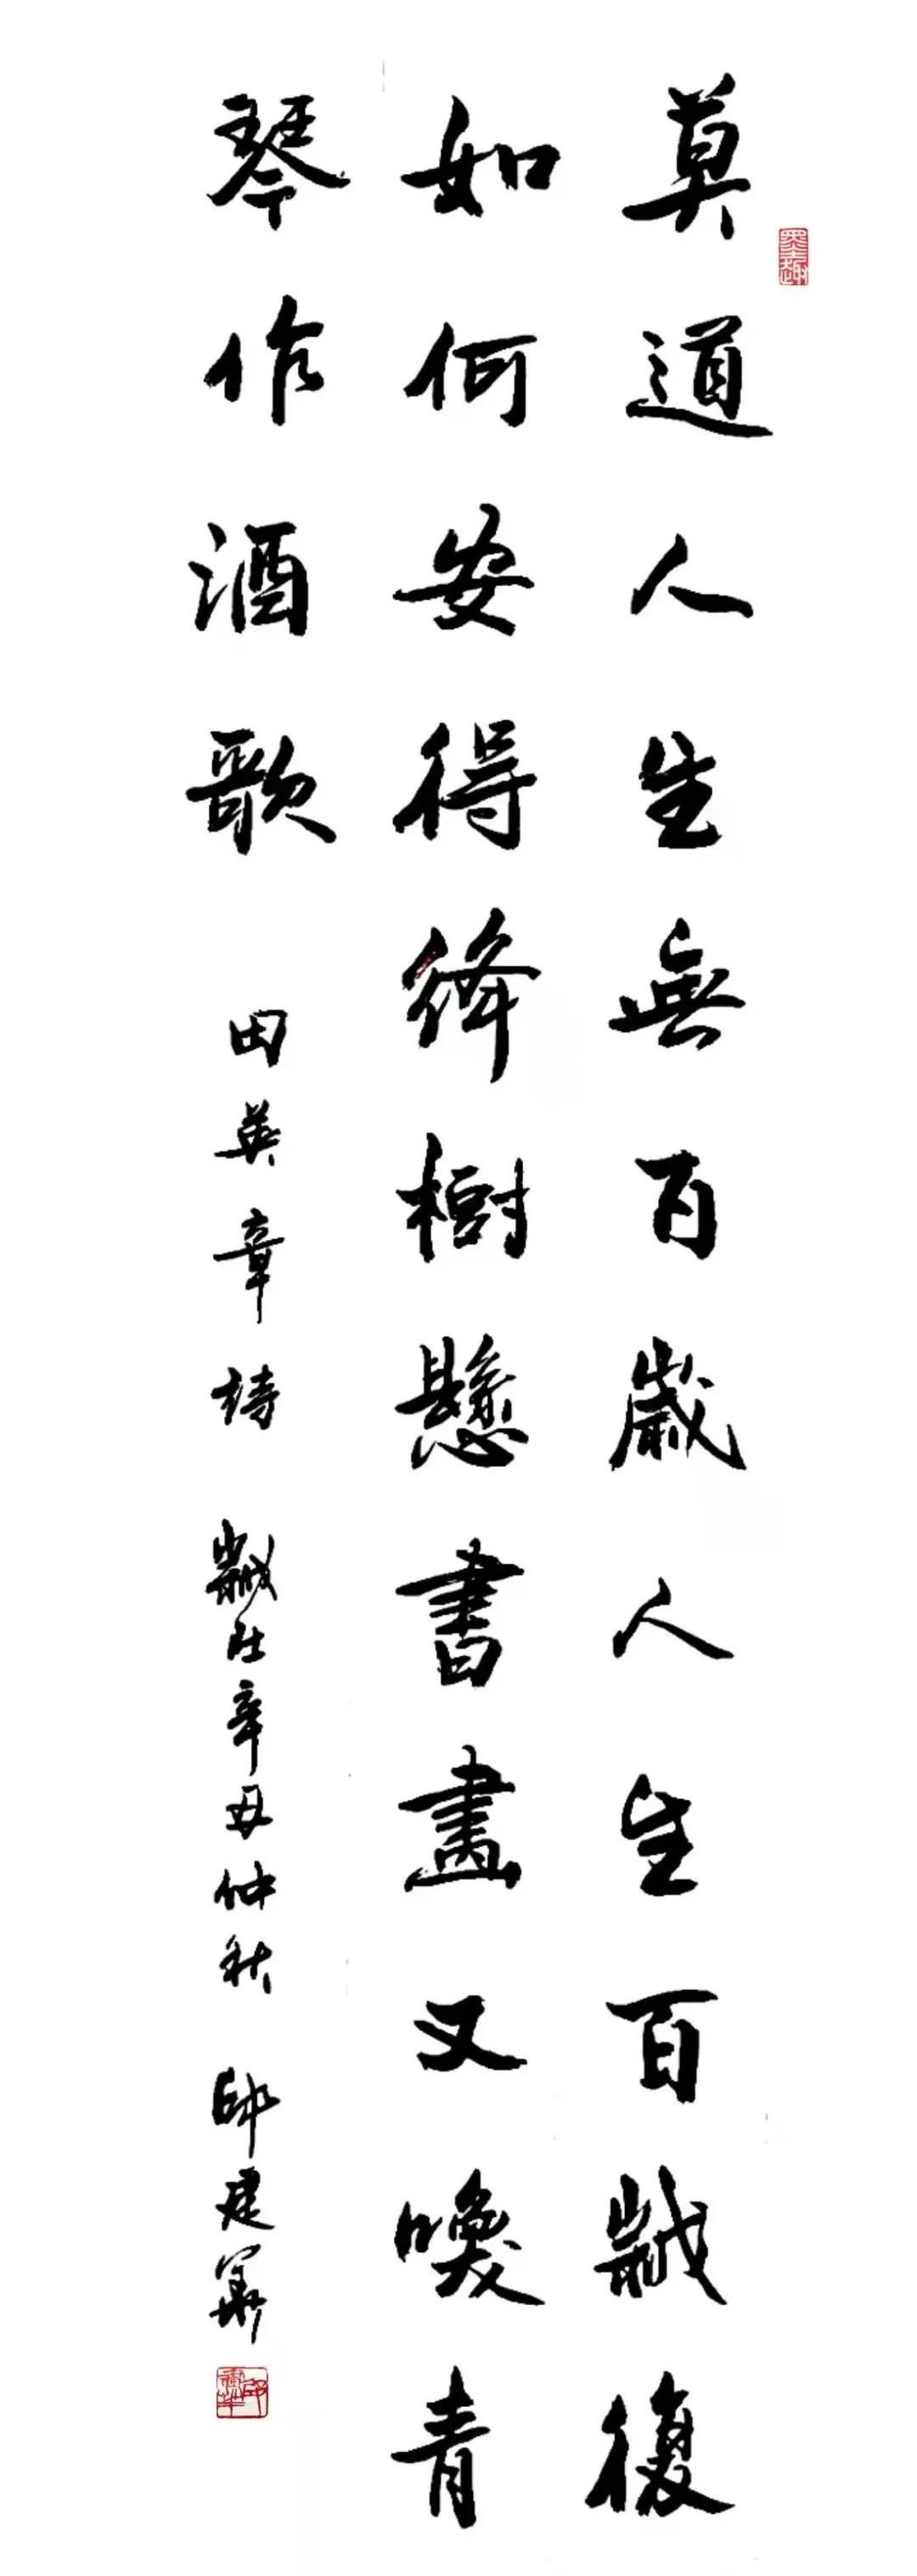 墨趣
莫道人生無百歲人生百歲復
如何安得絳樹懸書畫又喚青
琴作酒歌 田英章詩 歲在辛丑仲秋 帥建華